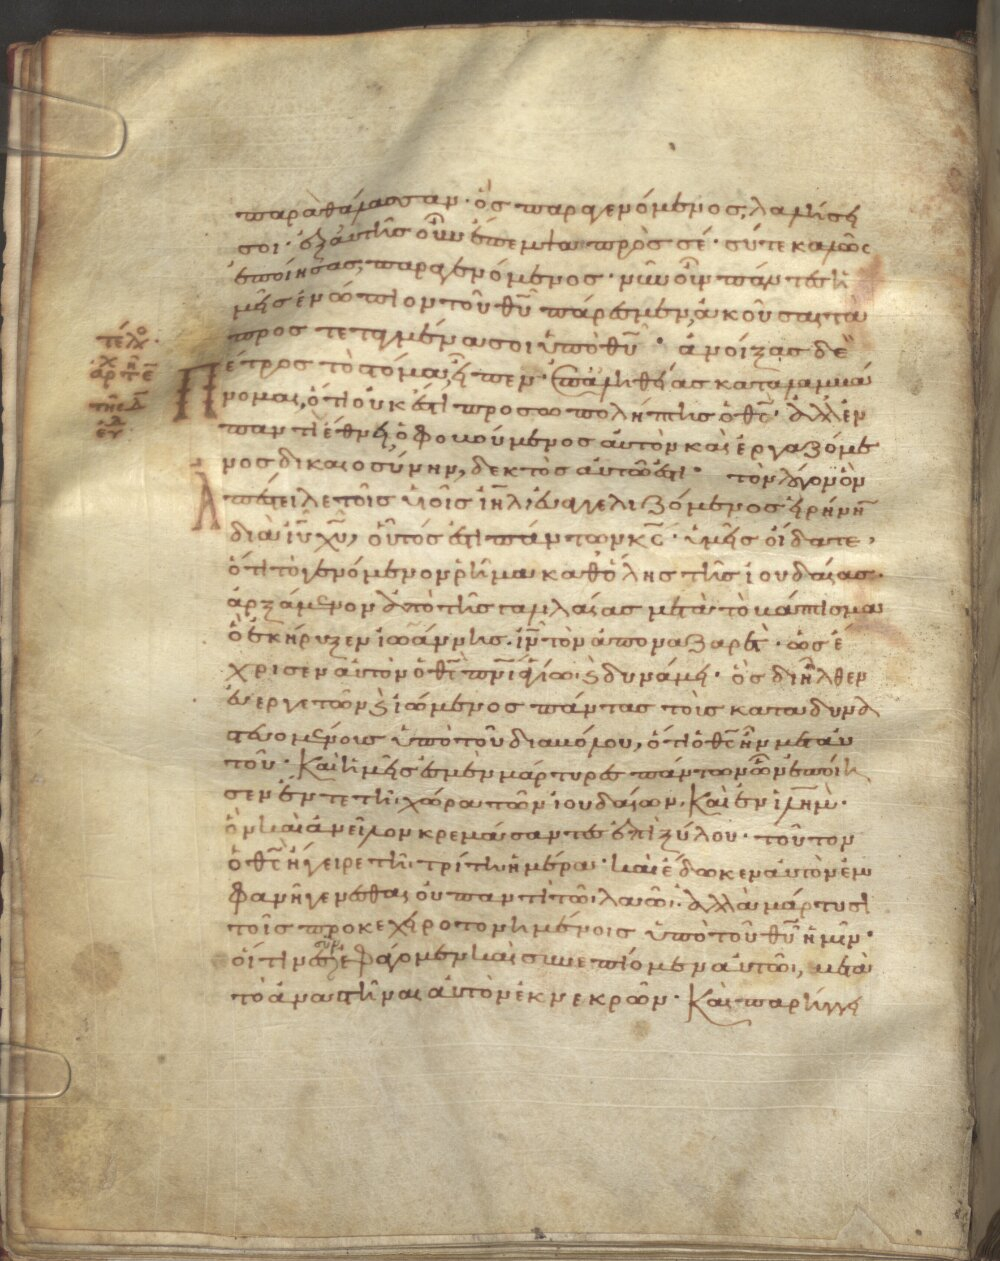 παρὰ θάλασσαν· ὃς παραγενόμενος, λαλήσει
σοι· ἐξ αὐτῆς οὖν ἔπεμψα πρὸς σέ· σύ τε καλῶς
ἐποίησας παραγενόμενος· νῦν οὖν πάντες ἡ
μεῖς ἐνώπιον τοῦ θῡ πάρεσμεν, ἀκοῦσαι τὰ
προστεταγμένα σοι ὑπὸ θῡ· ἀνοίξας δὲ
τέλος
Πέτρος τὸ στόμα, εἶπεν· ἐπ' ἀληθείας καταλαμβά
νομαι, ὅτι οὐκ ἔστι προσωπολήπτης ὁ θς̄· ἀλλ' ἐν
παντὶ ἔθνει, ὁ φοβούμενος αὐτὸν καὶ ἐργαζόμε
νος δικαιοσύνην, δεκτὸς αὐτῶ ἐστι· τὸν λόγον ὃν
Ἀπέστειλε τοῖς υἱοῖς ιῆλ, εὐαγγελιζόμενος εἰρήνην
διὰ ιῡ χῡ, οὗτός ἐστι πάντων κς̄· ὑμεῖς οἴδατε,
ὅτι τὸ γενόμενον ῥῆμα καθ' ὅλης τῆς ἰουδαίας·
ἀρξάμενον ἀπὸ τῆς γαλιλαίας μετὰ τὸ βάπτισμα
ὃ ἐκήρυξεν ἰωάννης. ιν̄ τὸν ἀπὸ ναζαρέτ· ὡς ἔ
χρισεν αὐτὸν ὁ θς̄ πνῑ ἁγίω ϗ δυνάμει· ὃς διῆλθεν
εὐεργετῶν ϗ ἰώμενος πάντας τοὺς καταδυνα
στευομένους ὑπὸ τοῦ διαβόλου, ὅτι ὁ θς̄ ἦν μετ' αὐ
τοῦ· Καὶ ἡμεῖς ἐσμὲν μάρτυρες πάντων ὧν ἐποίη
σεν ἔν τε τῆ χώρα τῶν ἰουδαίων. Καὶ ἐν ιλη̄μ·
ὃν καὶ ἀνεῖλον κρεμάσαντες ἐπὶ ξύλου· τοῦτον
ὁ θς̄ ἤγειρε τῆ τρίτη ἡμέρα· καὶ ἔδωκεν αὐτὸν ἐμ
φανῆ γενέσθαι, οὐ παντὶ τῶ λαῶ· ἀλλὰ μάρτυσι
τοῖς προκεχειροτονημένοις ὑπὸ τοῦ θῡ ἡμῖν·
οἵτινες συνεφάγομεν καὶ συνεπίομεν αὐτῶ, μετὰ
τὸ ἀναστῆναι αὐτὸν ἐκ νεκρῶν· Καὶ παρήγγει